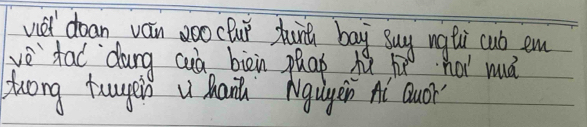 viết đoạn văn 200 chữ trình bày suy nghĩ của em
về tác dụng của biện pháp tu từ nói mỉa
trong truyện vi hành Nguyễn Ái Quốc